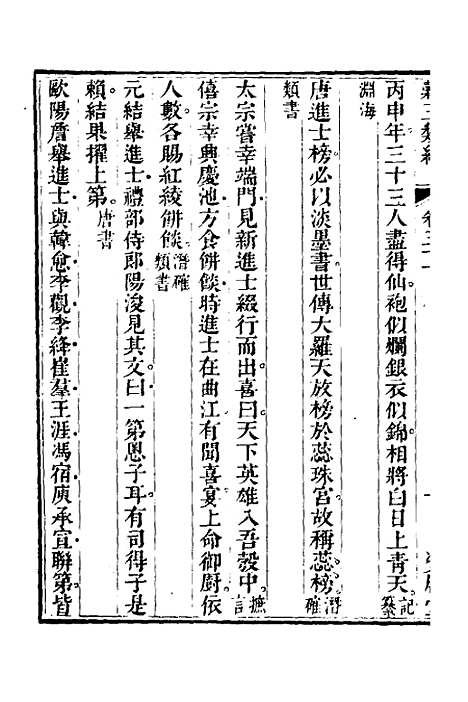 丙申年三十三人盡得仙袍似爛銀衣似錦相將白日上青天。記纂
淵海
唐進士榜必以淡墨書。世傳大羅天放榜於蕊珠宮故稱蕊榜。潛確
類書
太宗嘗幸端門見新進士綴行而出。喜曰天下英雄入吾彀中。摭言
僖宗幸興慶池方食餅餤時進士在曲江有聞喜宴上命御厨依
人數各賜紅綾餅餤。潛確類書
元結舉進士禮部侍郎陽浚見其文曰一第恩子耳有司得子是
賴結果擢上第。唐書
歐陽詹舉進士與韓愈李觀李絳崔羣王涯馮宿庾承宣聯第皆